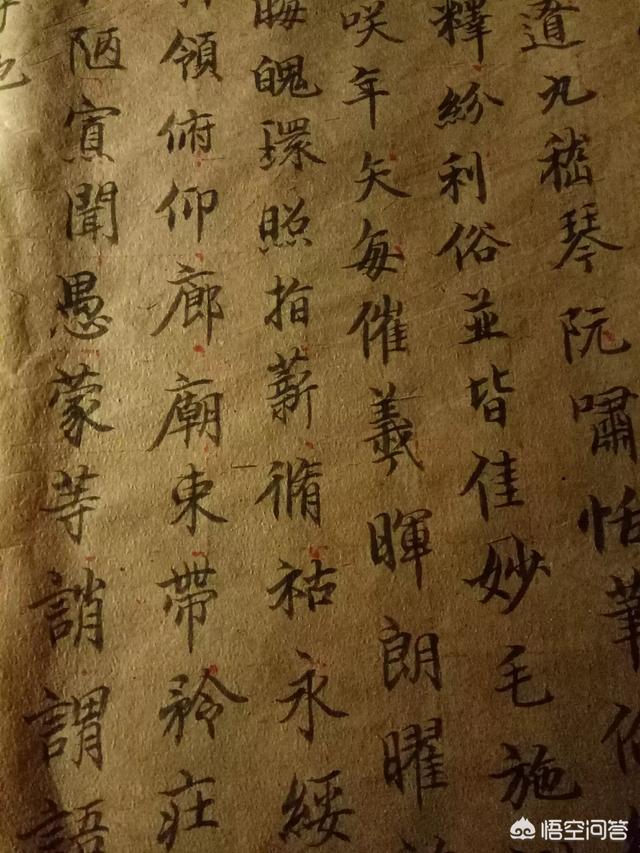 丸嵇琴阮嘯恬筆
釋紛利俗並皆佳妙毛施
咲年矢每催羲暉朗曜
晦魄環照指薪脩祜永綏
領俯仰廊廟束帶矜庄
陋寡聞愚蒙等誚謂語
也
悟空问答